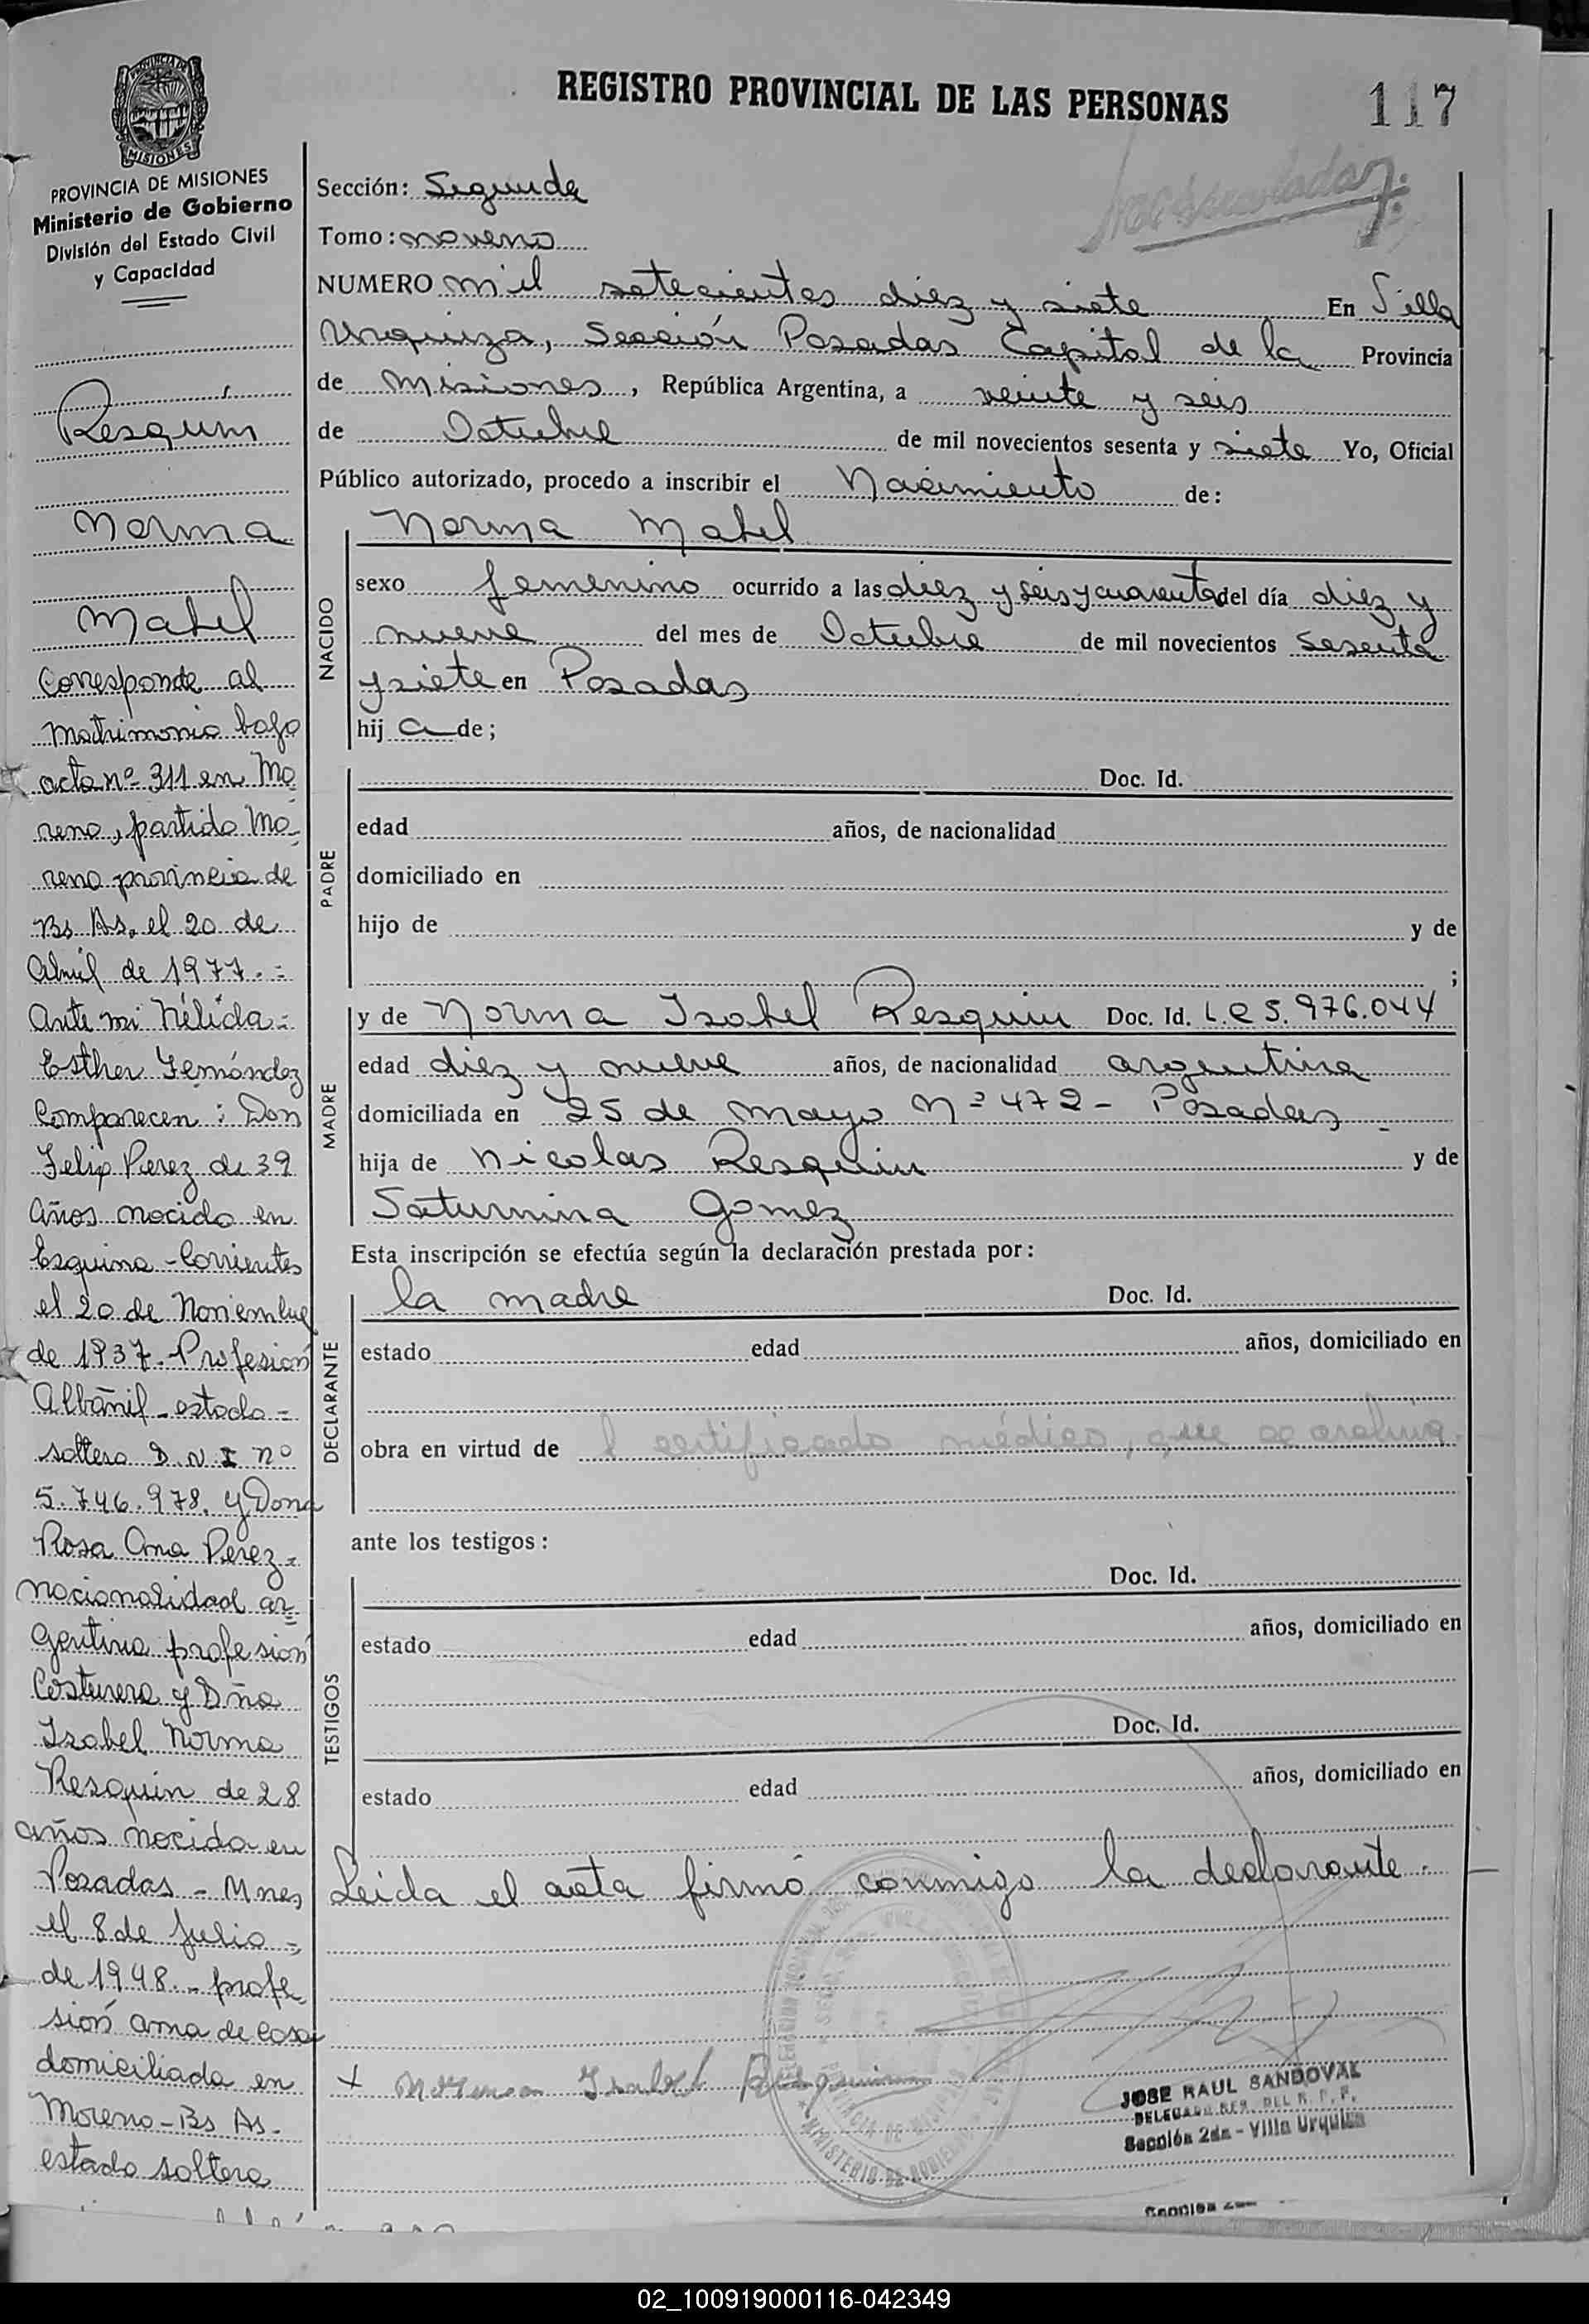 REGISTRO PROVINCIAL DE LAS PERSONAS
117
PROVINCIA DE MISIONES
Ministerio de Gobierno
División del Estado Civil
y Capacidad
Resquin
Norma
Mabel
Corresponde al
matrimonio bajo
acta nº 311 en Mo
reno, partido Mo-
reno provincia de
Bs As. el 20 de
Abril de 1977.=
Ante mi Nélida=
Esther Fernández
Comparecen: Don
Felix Perez de 39
años nacido en
Esquina - Corrientes
el 20 de Noviembre
de 1937. Profesión
Albañil - estado=
soltero D.N.I nº
5.746.978. y Dona
Rosa Ana Perez=
nacionalidad ar=
gentina profesión
Costurera y Dña
Isabel Norma
Resquin de 28
años nacida en
Posadas - Mnes
el 8 de Julio -
de 1948. - profe
sión ama de casa
domiciliada en
Moreno - Bs As.
estado soltera
Sección: Segunda
Tomo: noveno
NUMERO mil setecientos diez y siete En Villa
Urquiza, Sección Posadas Capital de la Provincia
de Misiones, República Argentina, a veinte y seis
de Octubre de mil novecientos sesenta y siete Yo, Oficial
Público autorizado, procedo a inscribir el Nacimiento de:
NACIDO
Norma Mabel
sexo femenino ocurrido a las diez y seis y cuarenta del día diez y
nueve del mes de Octubre de mil novecientos sesenta
y siete en Posadas
hij a de;
PADRE
Doc. Id.
edad años, de nacionalidad
domiciliado en
hijo de y de
;
MADRE
y de Norma Isabel Resquin Doc. Id. L.C 5.976.044
edad diez y nueve años, de nacionalidad argentina
domiciliada en 25 de mayo Nº 472 - Posadas
hija de Nicolas Resquin y de
Saturnina Gomez
Esta inscripción se efectúa según la declaración prestada por:
DECLARANTE
la madre Doc. Id.
estado edad años, domiciliado en
obra en virtud de l certificado médico, que se archiva.
ante los testigos:
TESTIGOS
Doc. Id.
estado edad años, domiciliado en
Doc. Id.
estado edad años, domiciliado en
Leida el acta firmó conmigo la declarante.
+ Norma Isabel Resquin
JOSE RAUL SANDOVAL
Sección 2da - Villa Urquiza
02_100919000116-042349